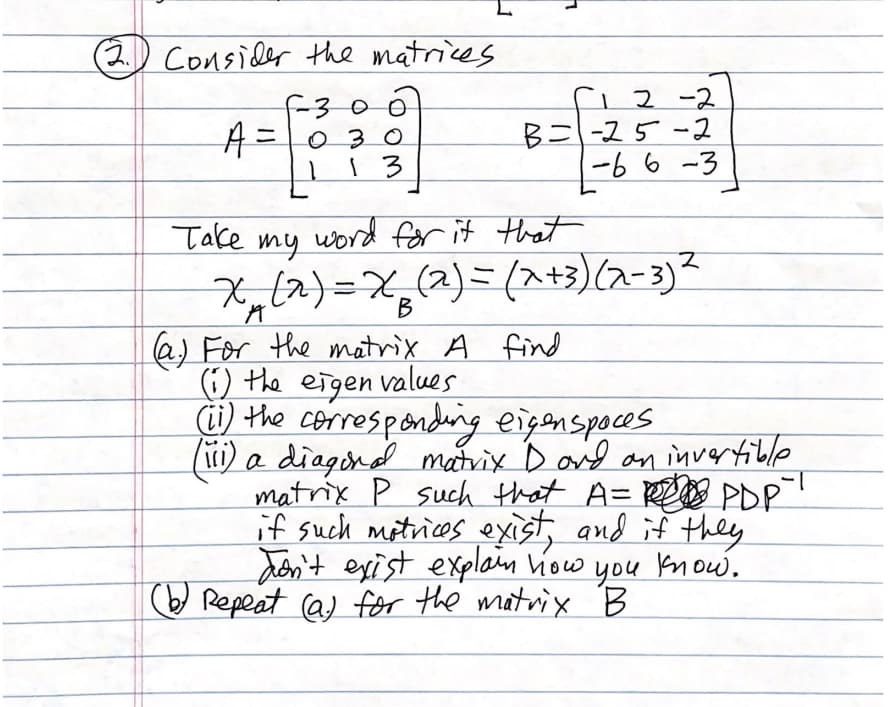 2. Consider the matrices
A = [-3 0 0
0 3 0
1 1 3]
B = [1 2 -2
-2 5 -2
-6 6 -3]
Take my word for it that
χ_A(λ) = χ_B(λ) = (λ+3)(λ-3)²
(a.) For the matrix A find
(i) the eigenvalues
(ii) the corresponding eigenspaces
(iii) a diagonal matrix D and an invertible
matrix P such that A= PDP⁻¹
if such matrices exist, and if they
don't exist explain how you know.
(b) Repeat (a.) for the matrix B